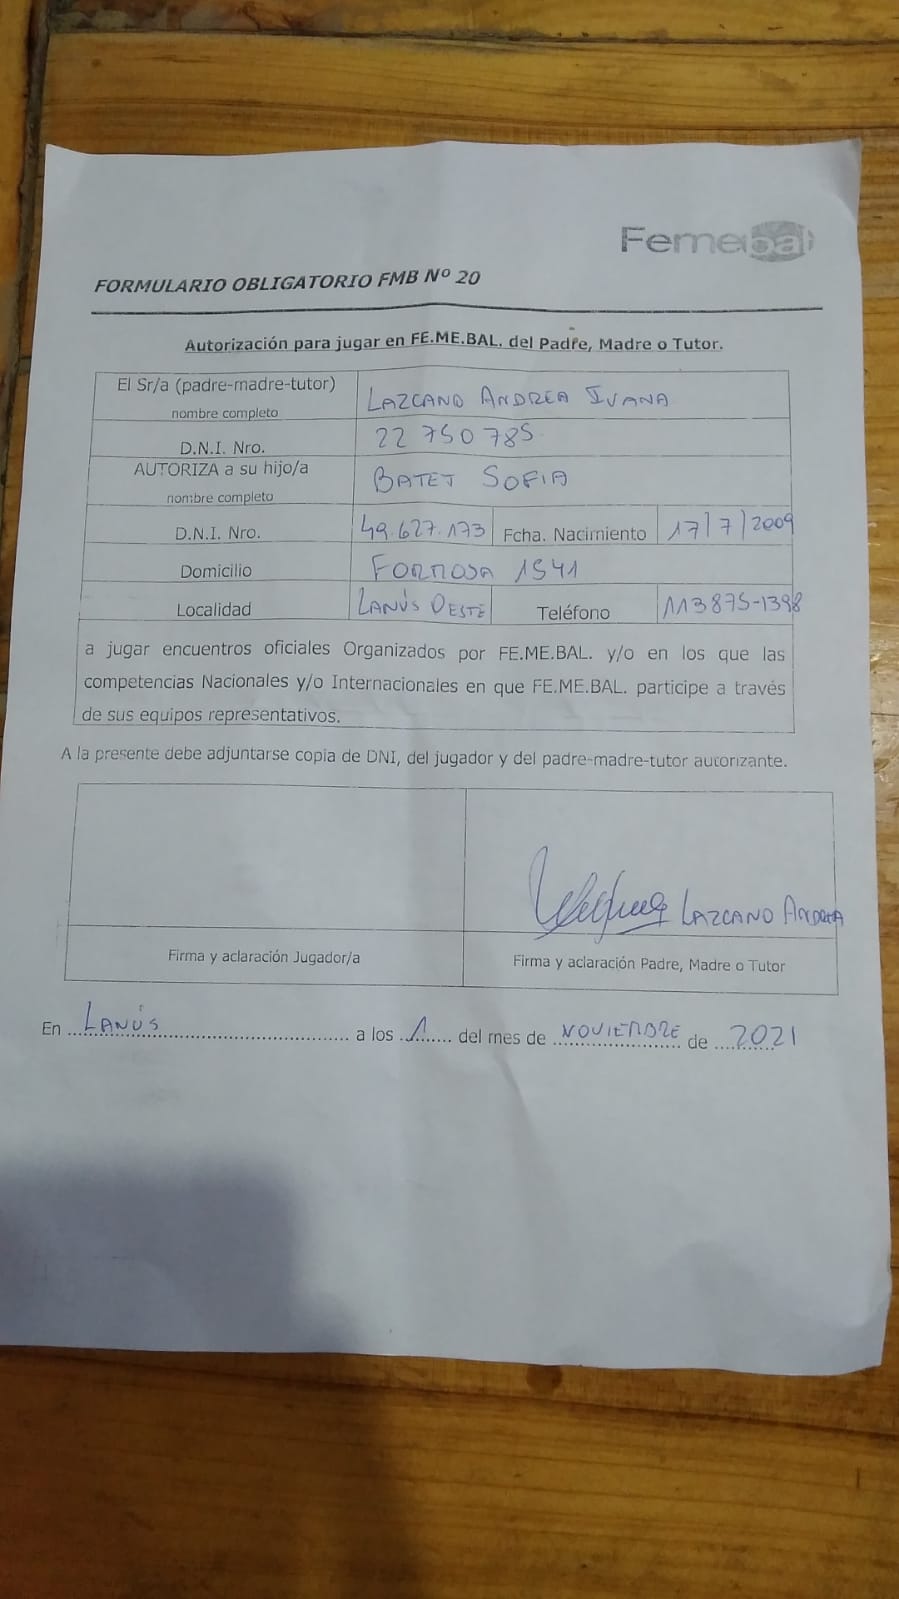 Femebal
FORMULARIO OBLIGATORIO FMB Nº 20
Autorización para jugar en FE.ME.BAL. del Padre, Madre o Tutor.
El Sr/a (padre-madre-tutor) nombre completo LAZCANO ANDREA IVANA
D.N.I. Nro. 22 750 785
AUTORIZA a su hijo/a nombre completo BATET SOFIA
D.N.I. Nro. 49.627.173 Fcha. Nacimiento 17/7/2009
Domicilio FORMOSA 1541
Localidad LANÚS OESTE Teléfono 113875-1398
a jugar encuentros oficiales Organizados por FE.ME.BAL. y/o en los que las
competencias Nacionales y/o Internacionales en que FE.ME.BAL. participe a través
de sus equipos representativos.
A la presente debe adjuntarse copia de DNI, del jugador y del padre-madre-tutor autorizante.
LAZCANO ANDREA
Firma y aclaración Jugador/a Firma y aclaración Padre, Madre o Tutor
En LANÚS a los 1 del mes de NOVIEMBRE de 2021